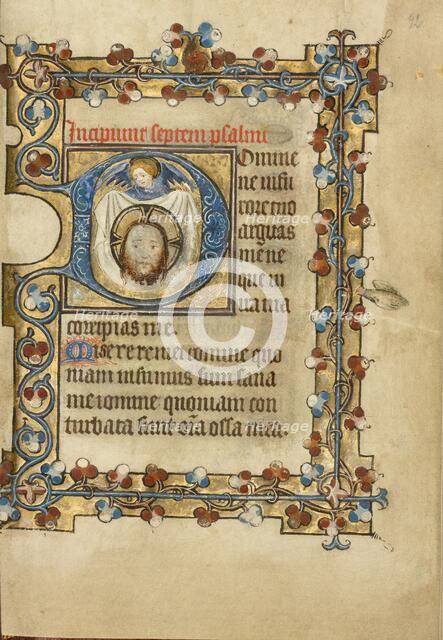 92
Incipiunt septem psalmi
Domine
ne in fu
rore tuo
arguas
me ne
que in
ira tua
corripias me.
Miserere mei domine quo
niam infirmus sum sana
me domine quoniam con
turbata sunt om̄ia ossa mea.
Heritage
Heritage
Heritage
Heritage
Heritage
Heritage
Heritage
Heritage
Heritage